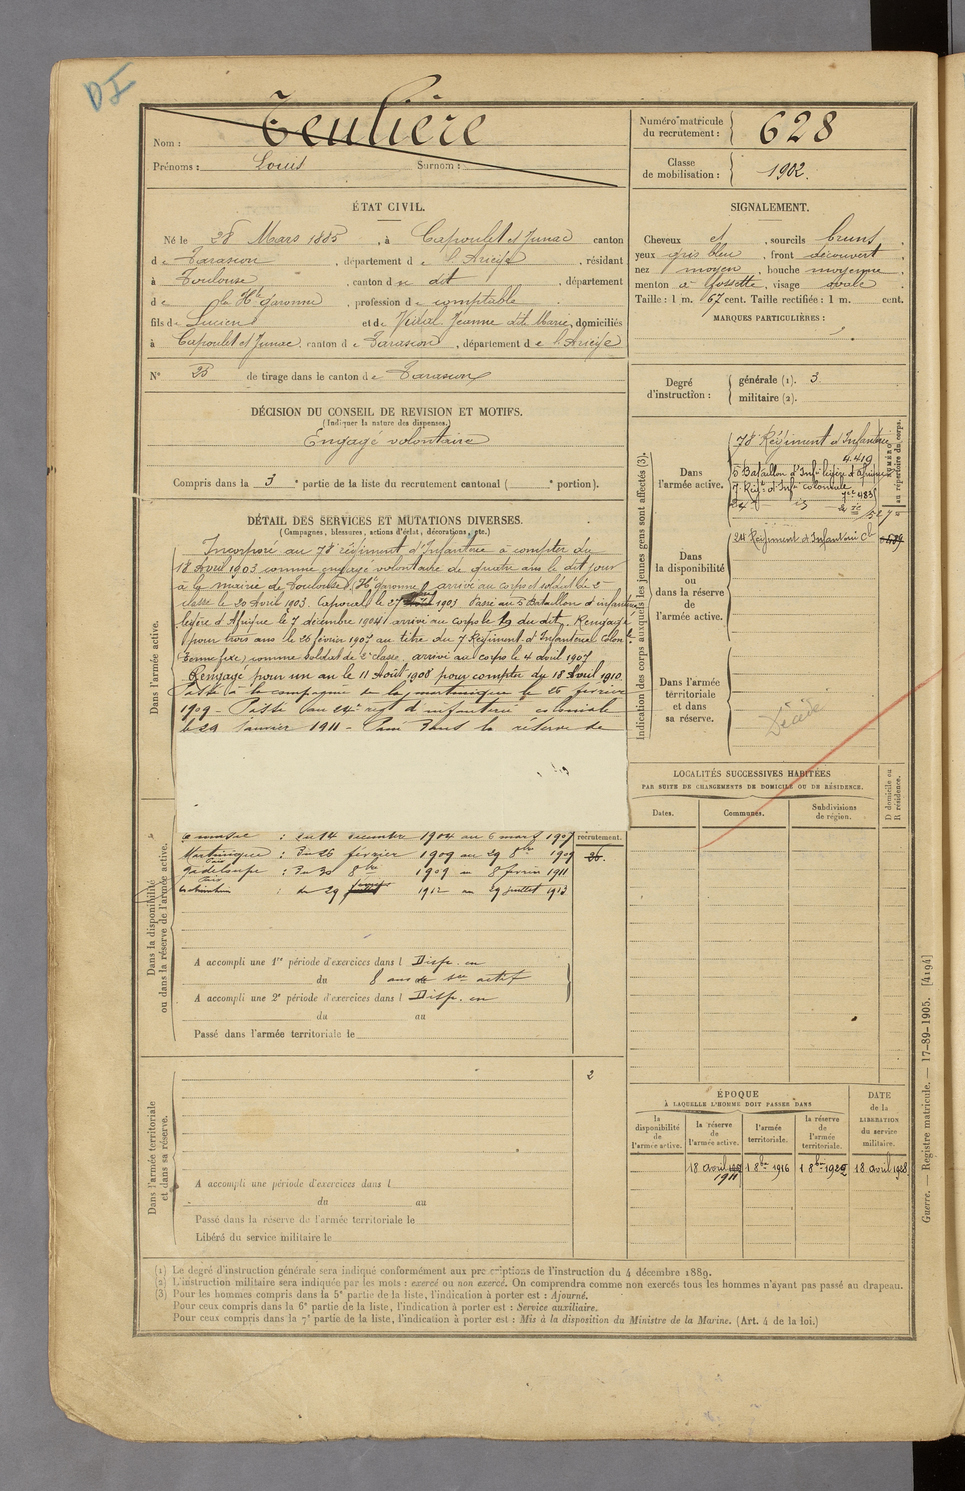 DI
Nom : Teulière
Prénoms : Louis Surnom :
Numéro matricule du recrutement : 628
Classe de mobilisation : 1902.
ÉTAT CIVIL.
Né le 28 Mars 1885, à Capoulet et Junac canton
de Tarascon, département de l'Ariège, résidant
à Toulouse, canton du dit, département
de la Hte Garonne, profession de comptable
fils de Lucien et de Vidal Jeanne dite Marie, domiciliés
à Capoulet et Junac, canton de Tarascon, département de l'Ariège
N° 25 de tirage dans le canton de Tarascon
SIGNALEMENT.
Cheveux et, sourcils bruns,
yeux gris bleu, front découvert,
nez moyen, bouche moyenne,
menton à fossette, visage ovale
Taille : 1 m. 67 cent. Taille rectifiée : 1 m. cent.
MARQUES PARTICULIÈRES :
Degré d'instruction : générale (1). 3
militaire (2).
DÉCISION DU CONSEIL DE REVISION ET MOTIFS.
(Indiquer la nature des dispenses.)
Engagé volontaire
Compris dans la 3e partie de la liste du recrutement cantonal ( e portion).
DÉTAIL DES SERVICES ET MUTATIONS DIVERSES.
(Campagnes, blessures, actions d'éclat, décorations, etc.)
Dans l'armée active.
Incorporé au 78e régiment d'Infanterie à compter du
18 Avril 1903 comme engagé volontaire de quatre ans le dit jour
à la mairie de Toulouse (Hte Garonne) arrivé au corps et soldat de 2e
classe le 20 Avril 1903. Caporal le 27 1903 Passé au 5 Bataillon d'infanterie
légère d'Afrique le 7 décembre 1904 arrivé au corps le 19 du dit. Rengagé
pour trois ans le 26 février 1907 au titre du 7 Régiment d'Infanterie Colon.
(terme fixe) comme soldat de 2e classe, arrivé au corps le 4 avril 1907
Rengagé pour un an le 11 Août 1908 pour compter du 18 Avril 1910
Passé à la compagnie de la martinique le 26 février
1909 - Passé au 24e régt d'infanterie coloniale
le 29 Janvier 1911 - Passé dans la réserve de
: du 14 décembre 1904 au 6 mars 1907
Martinique : du 26 février 1909 au 29 8bre 1909
Guadeloupe : du 30 8bre 1909 au 8 février 1911
: du 29 1912 au 29 juillet 1913
recrutement.
26.
Dans la disponibilité
ou dans la réserve de l'armée active.
A accompli une 1re période d'exercices dans l Disp. en
du 8 ans de sce actif
A accompli une 2e période d'exercices dans l Disp. en
du au
Passé dans l'armée territoriale le
2
Dans l'armée territoriale
et dans sa réserve.
A accompli une période d'exercices dans l
du au
Passé dans la réserve de l'armée territoriale le
Libéré du service militaire le
Indication des corps auxquels les jeunes gens sont affectés (3).
NUMÉRO au répertoire du corps.
Dans l'armée active.
78e Régiment d'Infanterie
4.419
5 Bataillon d'Infie légère d'Afrique
7 Régt d'Infie coloniale
24
Dans la disponibilité ou dans la réserve de l'armée active.
24 Régiment d'Infanterie Cle
Dans l'armée térritoriale et dans sa réserve.
Décédé
LOCALITÉS SUCCESSIVES HABITÉES
PAR SUITE DE CHANGEMENTS DE DOMICILE OU DE RÉSIDENCE.
Dates. Communes. Subdivisions de région.
D domicile ou R résidence.
ÉPOQUE
À LAQUELLE L'HOMME DOIT PASSER DANS
la disponibilité de l'armée active.
la réserve de l'armée active.
l'armée territoriale.
la réserve de l'armée territoriale.
DATE de la LIBÉRATION du service militaire.
18 avril 1911
1 8bre 1916
1 8bre 1922
18 avril 1928
Guerre. — Registre matricule. — 17-89-1905. [4194]
(1) Le degré d'instruction générale sera indiqué conformément aux prescriptions de l'instruction du 4 décembre 1889.
(2) L'instruction militaire sera indiquée par les mots : exercé ou non exercé. On comprendra comme non exercés tous les hommes n'ayant pas passé au drapeau.
(3) Pour les hommes compris dans la 5e partie de la liste, l'indication à porter est : Ajourné.
Pour ceux compris dans la 6e partie de la liste, l'indication à porter est : Service auxiliaire.
Pour ceux compris dans la 7e partie de la liste, l'indication à porter est : Mis à la disposition du Ministre de la Marine. (Art. 4 de la loi.)